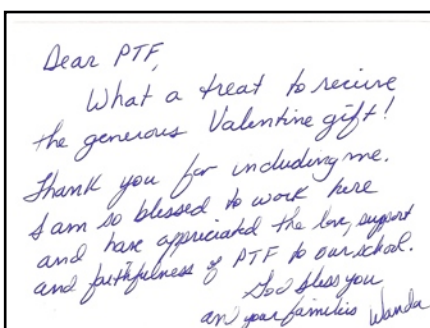 Dear PTF,
What a treat to recieve
the generous Valentine gift!
Thank you for including me.
I am so blessed to work here
and have appreciated the love, support
and faithfulness of PTF to our school.
God bless you
an your families Wanda